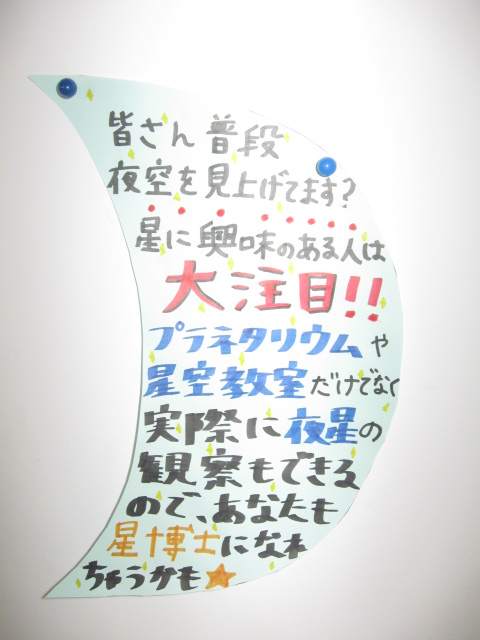 皆さん普段
夜空を見上げてます?
星に興味のある人は
大注目!!
プラネタリウムや
星空教室だけでなく
実際に夜星の
観察もできる
ので、あなたも
星博士になれ
ちゃうかも